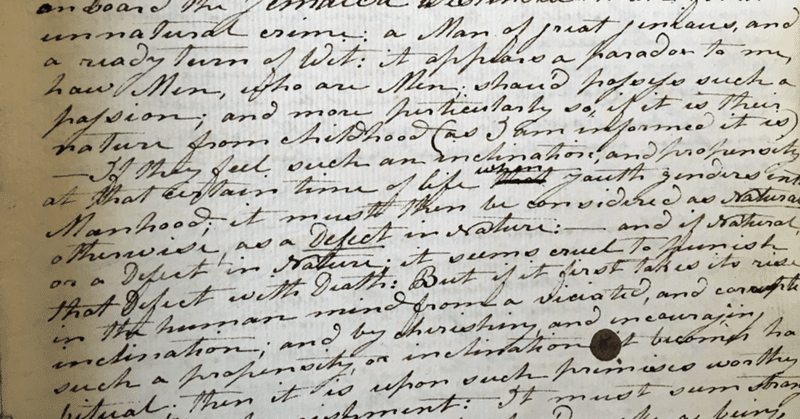 on board the Jamaica
unnatural crime; a Man of great genious, and
a ready turn of Wit: it appears a paradox to me,
how Men, who are Men; shou'd possess such a
passion; and more perticularly so, if it is their
nature from childhood (as I am informed it is)
— If they feel such an inclination, and propensity
at that certain time of life when youth genders into
Manhood; it must then be considered as Natural
otherwise, as a Defect in Nature: — and if Natural,
or a Defect in Nature; it seems cruel to punish
that Defect with Death: But if it first takes its rise
in the human mind from a viciated, and corrupted
inclination; and by cherishing, and incourajin,
such a propensity, or inclination t becomes ha
bitual: then it is upon such premises worthy
punishment: It must seem strang
being,